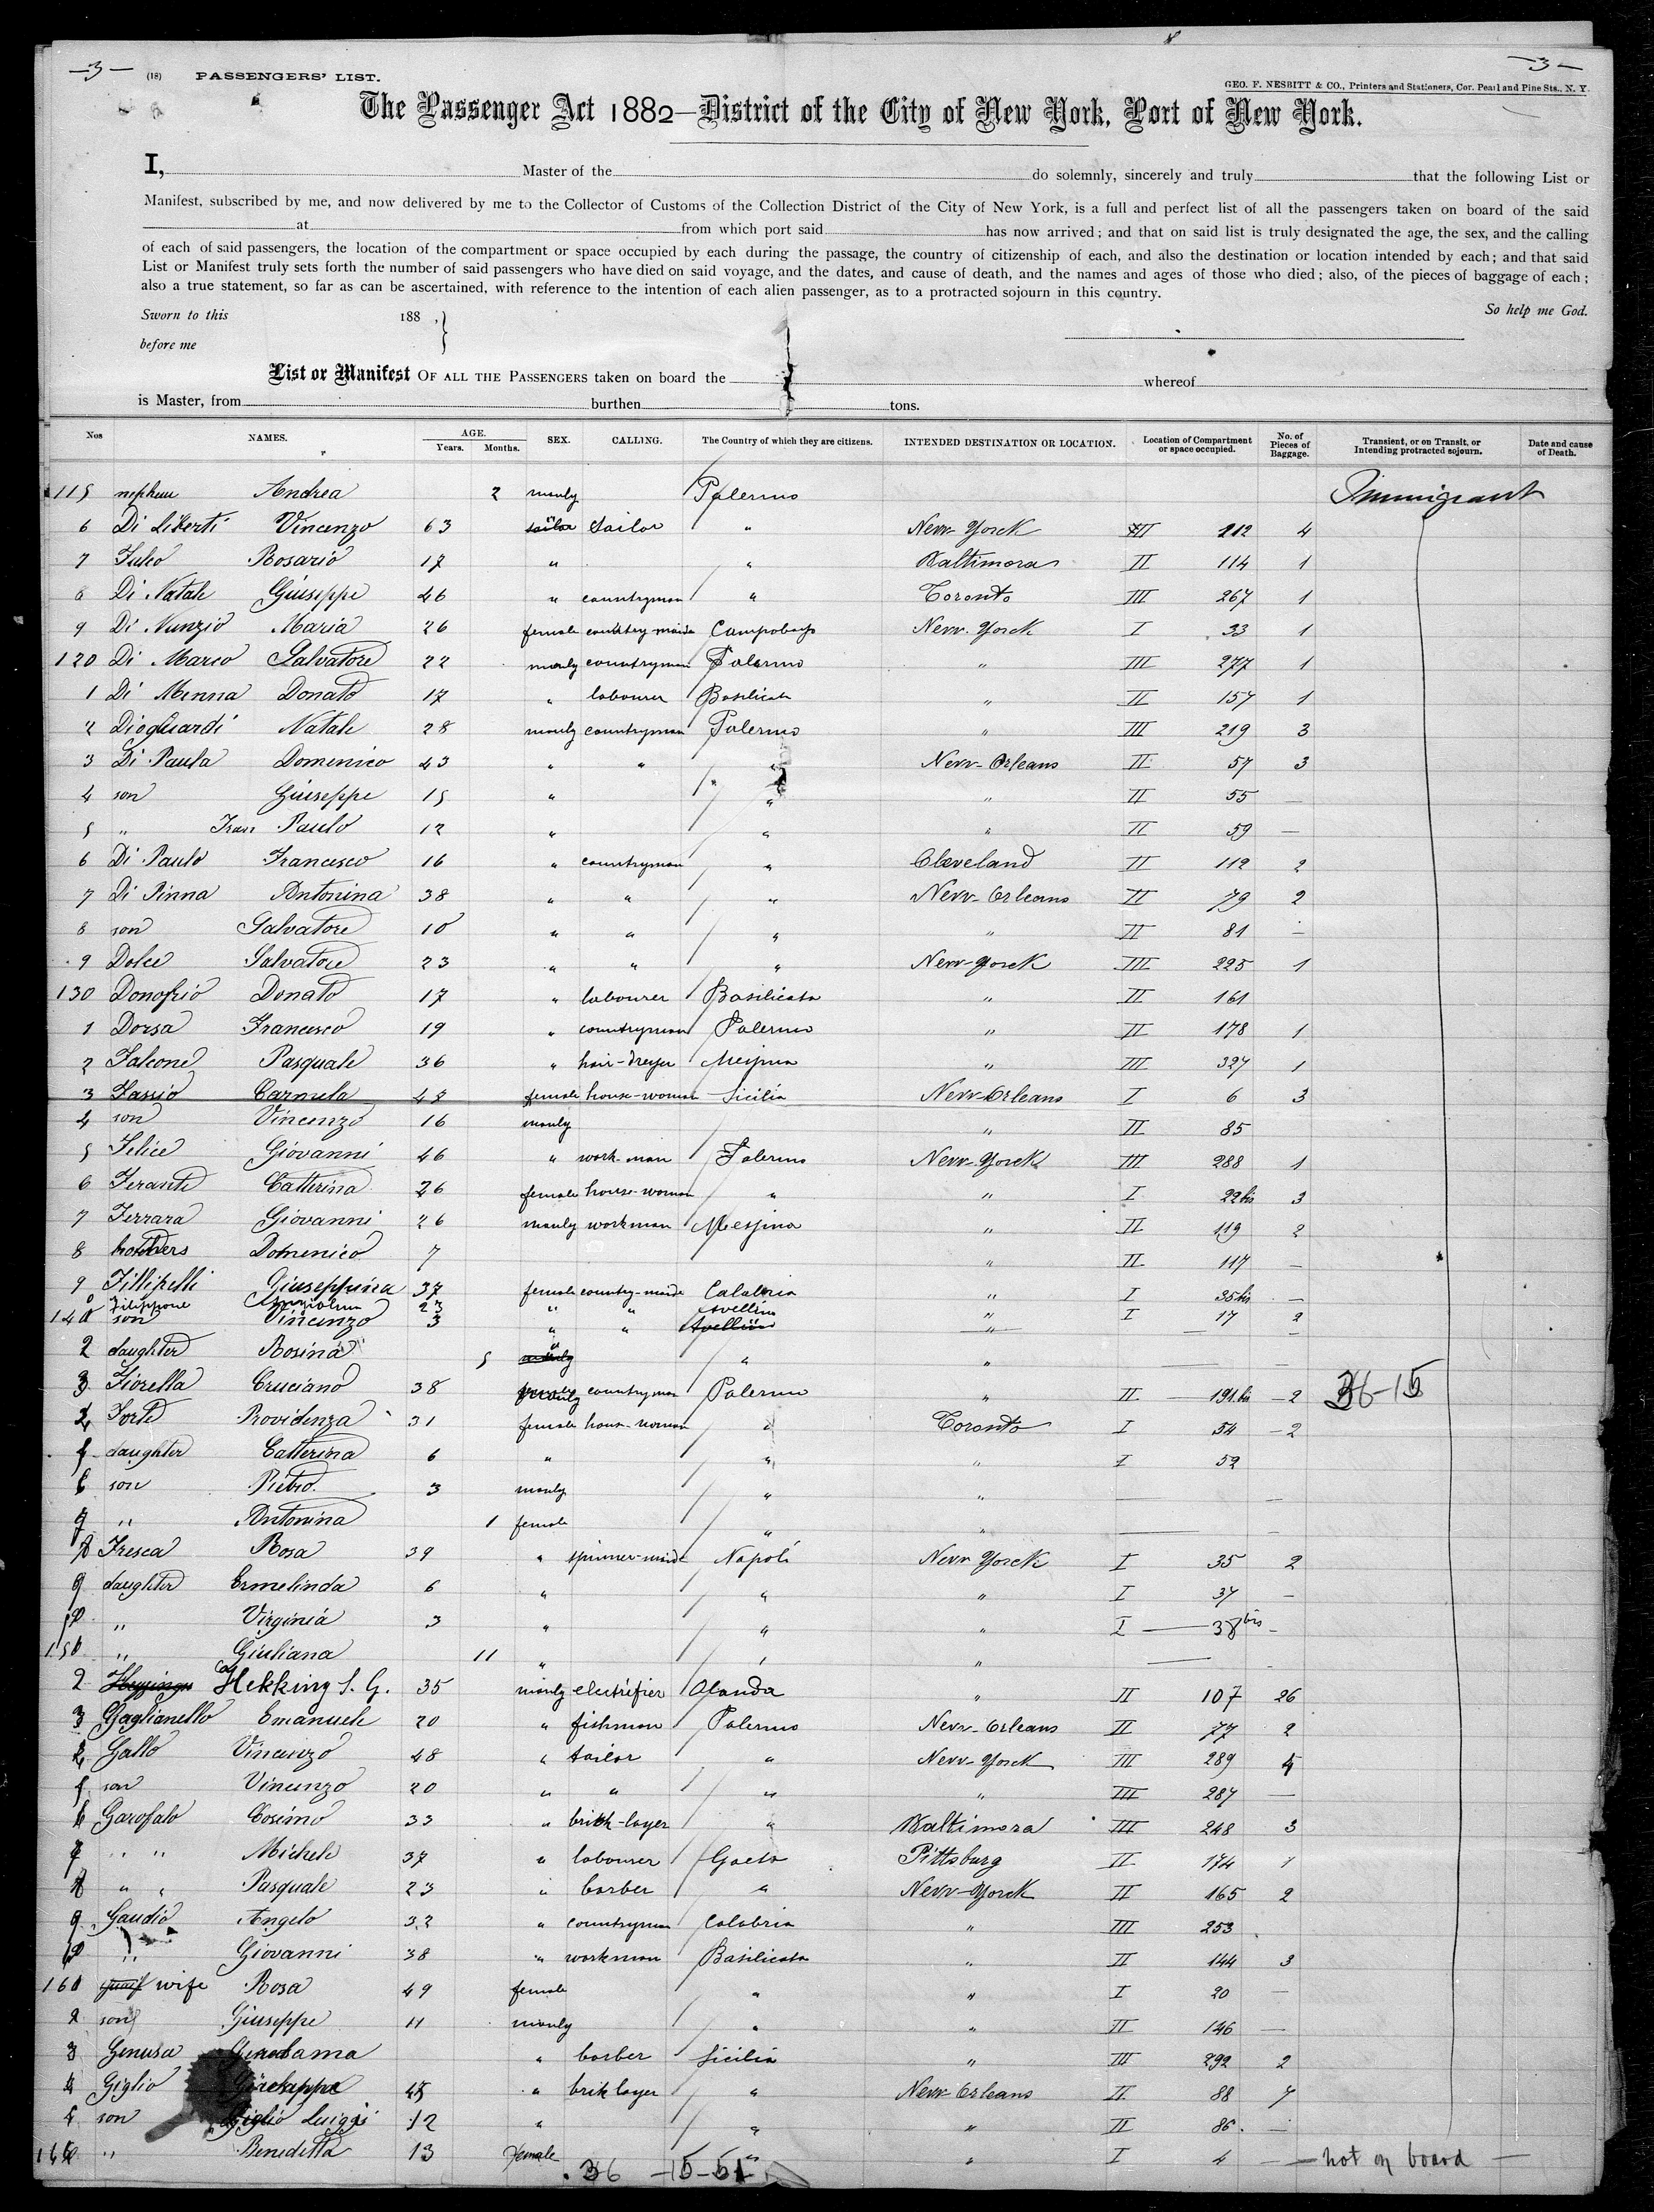 —3— (18) PASSENGERS' LIST. —3—
GEO. F. NESBITT & CO., Printers and Stationers, Cor. Pearl and Pine Sts., N. Y.
The Passenger Act 1882—District of the City of New York, Port of New York.
I, Master of the do solemnly, sincerely and truly that the following List or
Manifest, subscribed by me, and now delivered by me to the Collector of Customs of the Collection District of the City of New York, is a full and perfect list of all the passengers taken on board of the said
at from which port said has now arrived; and that on said list is truly designated the age, the sex, and the calling
of each of said passengers, the location of the compartment or space occupied by each during the passage, the country of citizenship of each, and also the destination or location intended by each; and that said
List or Manifest truly sets forth the number of said passengers who have died on said voyage, and the dates, and cause of death, and the names and ages of those who died; also, of the pieces of baggage of each;
also a true statement, so far as can be ascertained, with reference to the intention of each alien passenger, as to a protracted sojourn in this country.
Sworn to this 188 , So help me God.
before me
List or Manifest OF ALL THE PASSENGERS taken on board the whereof
is Master, from burthen tons.
Nos NAMES. AGE. Years. Months. SEX. CALLING. The Country of which they are citizens. INTENDED DESTINATION OR LOCATION. Location of Compartment or space occupied. No. of Pieces of Baggage. Transient, or on Transit, or Intending protracted sojourn. Date and cause of Death.
115 nepheu Andrea 2 manly Palermo Immigrant
6 Di Liberti Vincenzo 63 sailor " New-Yorck III 212 4
7 Fulco Rosario 17 " " Baltimora II 114 1
8 Di Natale Giuseppe 46 " countryman " Toronto III 267 1
9 Di Nunzio Maria 26 female country-maide Campobasso New-Yorck I 33 1
120 Di Marco Salvatore 22 manly countryman Palermo " III 277 1
1 Di Menna Donato 17 " labourer Basilicata " II 157 1
2 Dioguardi Natale 28 manly countryman Palermo " III 219 3
3 Di Paula Domenico 43 " " " New-Orleans II 57 3
4 son Giuseppe 15 " " " II 55 —
5 " Paulo 12 " " " II 59 —
6 Di Paulo Francesco 16 " countryman " Cleveland II 112 2
7 Di Pinna Antonina 38 " " " New-Orleans II 79 2
8 son Salvatore 10 " " " " II 81 —
9 Dolce Salvatore 23 " " " New-Yorck III 225 1
130 Donofrio Donato 17 " labourer Basilicata " II 161
1 Dorsa Francesco 19 " countryman Palermo " II 178 1
2 Falcone Pasquale 36 " hair-dreyer Messina " III 327 1
3 Fassio Carmela 48 female house-woman Sicilia New-Orleans I 6 3
4 son Vincenzo 16 manly " II 85
5 Felice Giovanni 46 " work-man Palermo New-Yorck III 288 1
6 Ferante Catterina 26 female house-woman " " I 22 bis 3
7 Ferrara Giovanni 26 manly workman Messina " II 119 2
8 brothers Domenico 7 " II 117 —
9 Fillipelli Giuseppina 37 female country-maide Calabria " I 35 bis —
0 Filippone 23 " " Avellino " I 17 2
140 son Vincenzo 3 " " Avellino " — —
2 daughter Rosina 5 manly " " — —
3 Fiorella Cruciano 38 manly countryman Palermo " II 191 bis 2 36-15
4 Forte Providenza 31 female house-woman " Toronto I 54 2
5 daughter Catterina 6 " " " I 52
6 son Pietro 3 manly " " — —
7 " Antonina 1 female " " — —
8 Fresca Rosa 39 " spinner-maide Napoli New Yorck I 35 2
9 daughter Ermelinda 6 " " " I 37 —
" Virginia 3 " " " I 38 bis —
150 " Giuliana 11 " " " — —
2 Hekking S. G. 35 manly electrifier Olanda " II 107 26
3 Gaglianello Emanuele 20 " fishman Palermo New-Orleans II 77 2
4 Gallo Vincenzo 48 " tailor " New-Yorck III 289 4
5 son Vincenzo 20 " " " " III 287 —
6 Garofalo Cosimo 33 " brick-layer " Baltimora III 248 3
7 " " Michele 37 " labourer Gaeta Pittsburg II 174 1
8 " " Pasquale 23 " barber " New-Yorck II 165 2
9 Gaudio Angelo 32 " countryman Calabria " III 253
" Giovanni 38 " workman Basilicata " II 144 3
160 wife Rosa 49 female " " I 20 —
2 son Giuseppe 11 manly " " II 146 —
3 Genusa " barber Sicilia " III 292 2
4 Giglio Giuseppe 45 " brik layer " New Orleans II 88 7
5 son Giglio Luiggi 12 " " " II 86 —
166 " Benedetta 13 female " " I 4 — not on board —
36 —15—51